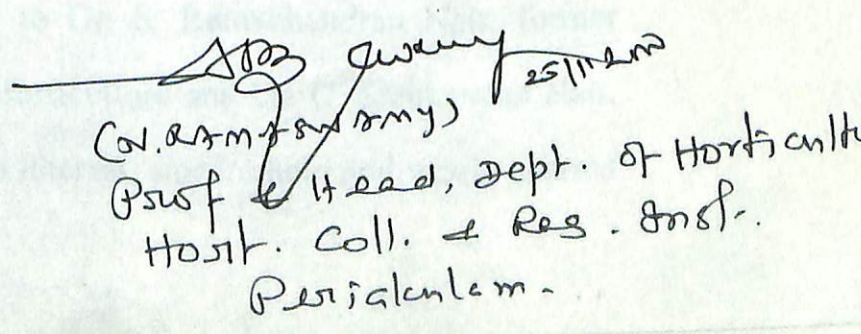 25/11/2000
(N. RAMASWAMY)
Prof & Head, Dept. of Horticultu
Hort. Coll. & Res. Inst.
Periakulam.